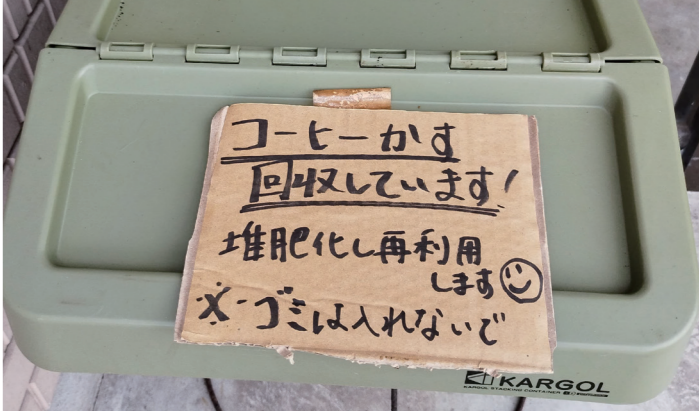 コーヒーかす
回収しています!
堆肥化し再利用
します
※ゴミは入れないで
KARGOL
KARGOL STACKING CONTAINER